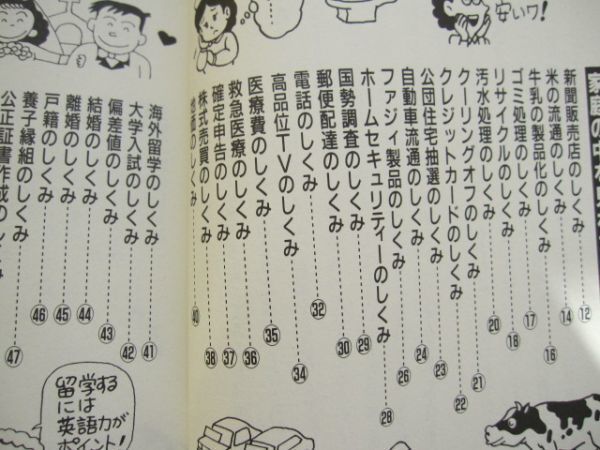 安いワ！
家庭の中
新聞販売店のしくみ……⑫
米の流通のしくみ……⑭
牛乳の製品化のしくみ……⑯
リサイクルのしくみ……⑰
ゴミ処理のしくみ……⑱
汚水処理のしくみ……⑳
クーリングオフのしくみ……㉑
クレジットカードのしくみ……㉒
公団住宅抽選のしくみ……㉓
自動車流通のしくみ……㉔
ファジィ製品のしくみ……㉖
ホームセキュリティーのしくみ……㉘
国勢調査のしくみ……㉙
郵便配達のしくみ……㉚
電話のしくみ……㉜
高品位TVのしくみ……㉞
医療費のしくみ……㉟
救急医療のしくみ……㊱
確定申告のしくみ……㊲
株式売買のしくみ……㊳
地価のしくみ……㊵
海外留学のしくみ……㊶
大学入試のしくみ……㊷
偏差値のしくみ……㊸
結婚のしくみ……㊹
離婚のしくみ……㊺
戸籍のしくみ……㊻
養子縁組のしくみ……㊼
公正証書作成のしく
留学する
には
英語力が
ポイント！